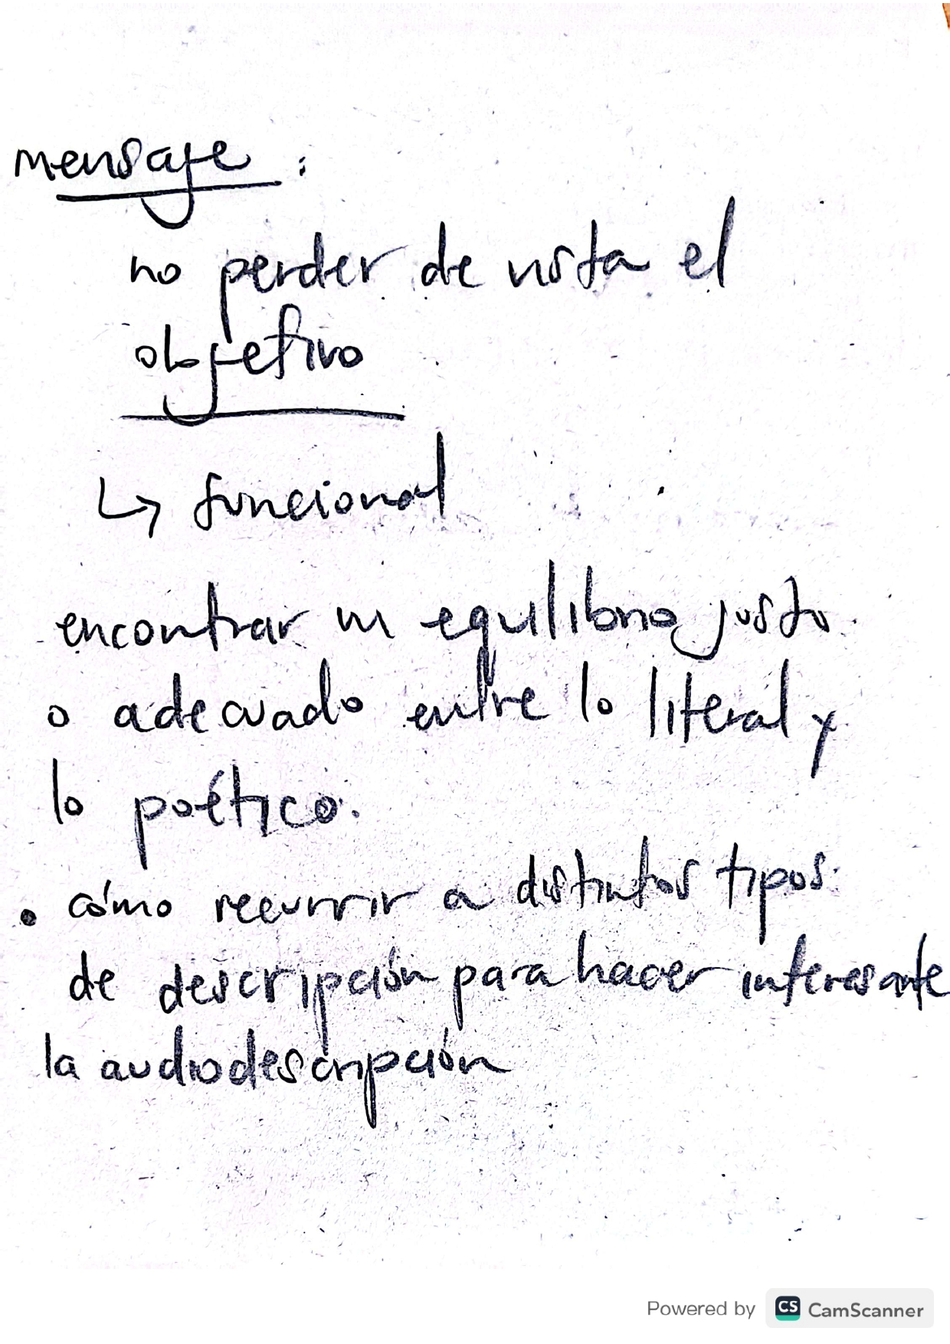 mensaje :
no perder de vista el
objetivo
↳ funcional
encontrar un equilibrio justo
o adecuado entre lo literal y
lo poético.
• cómo recurrir a distintos tipos
de descripción para hacer interesante
la audiodescripción
Powered by CS CamScanner